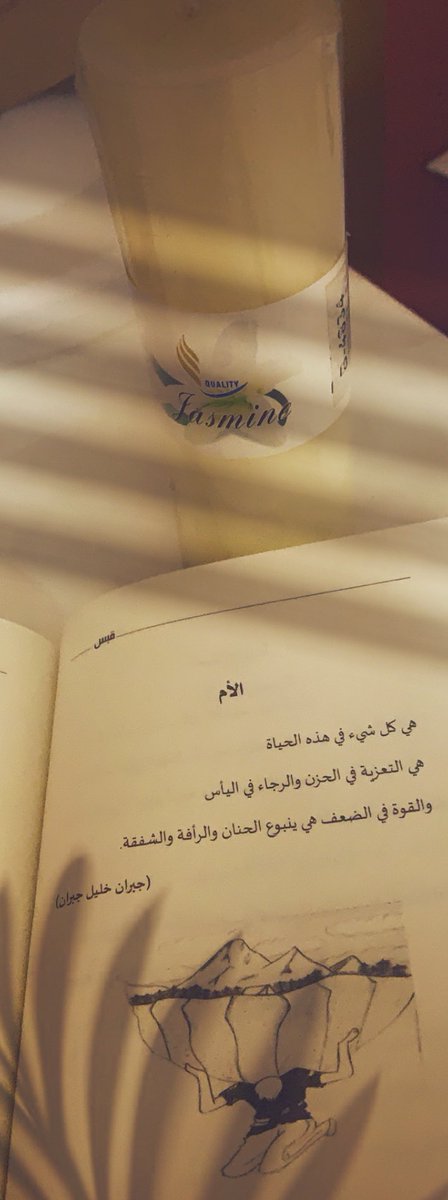 QUALITY
Jasmine
قبس
الأم
هي كل شيء في هذه الحياة
هي التعزية في الحزن والرجاء في اليأس
والقوة في الضعف هي ينبوع الحنان والرأفة والشفقة.
(جبران خليل جبران)